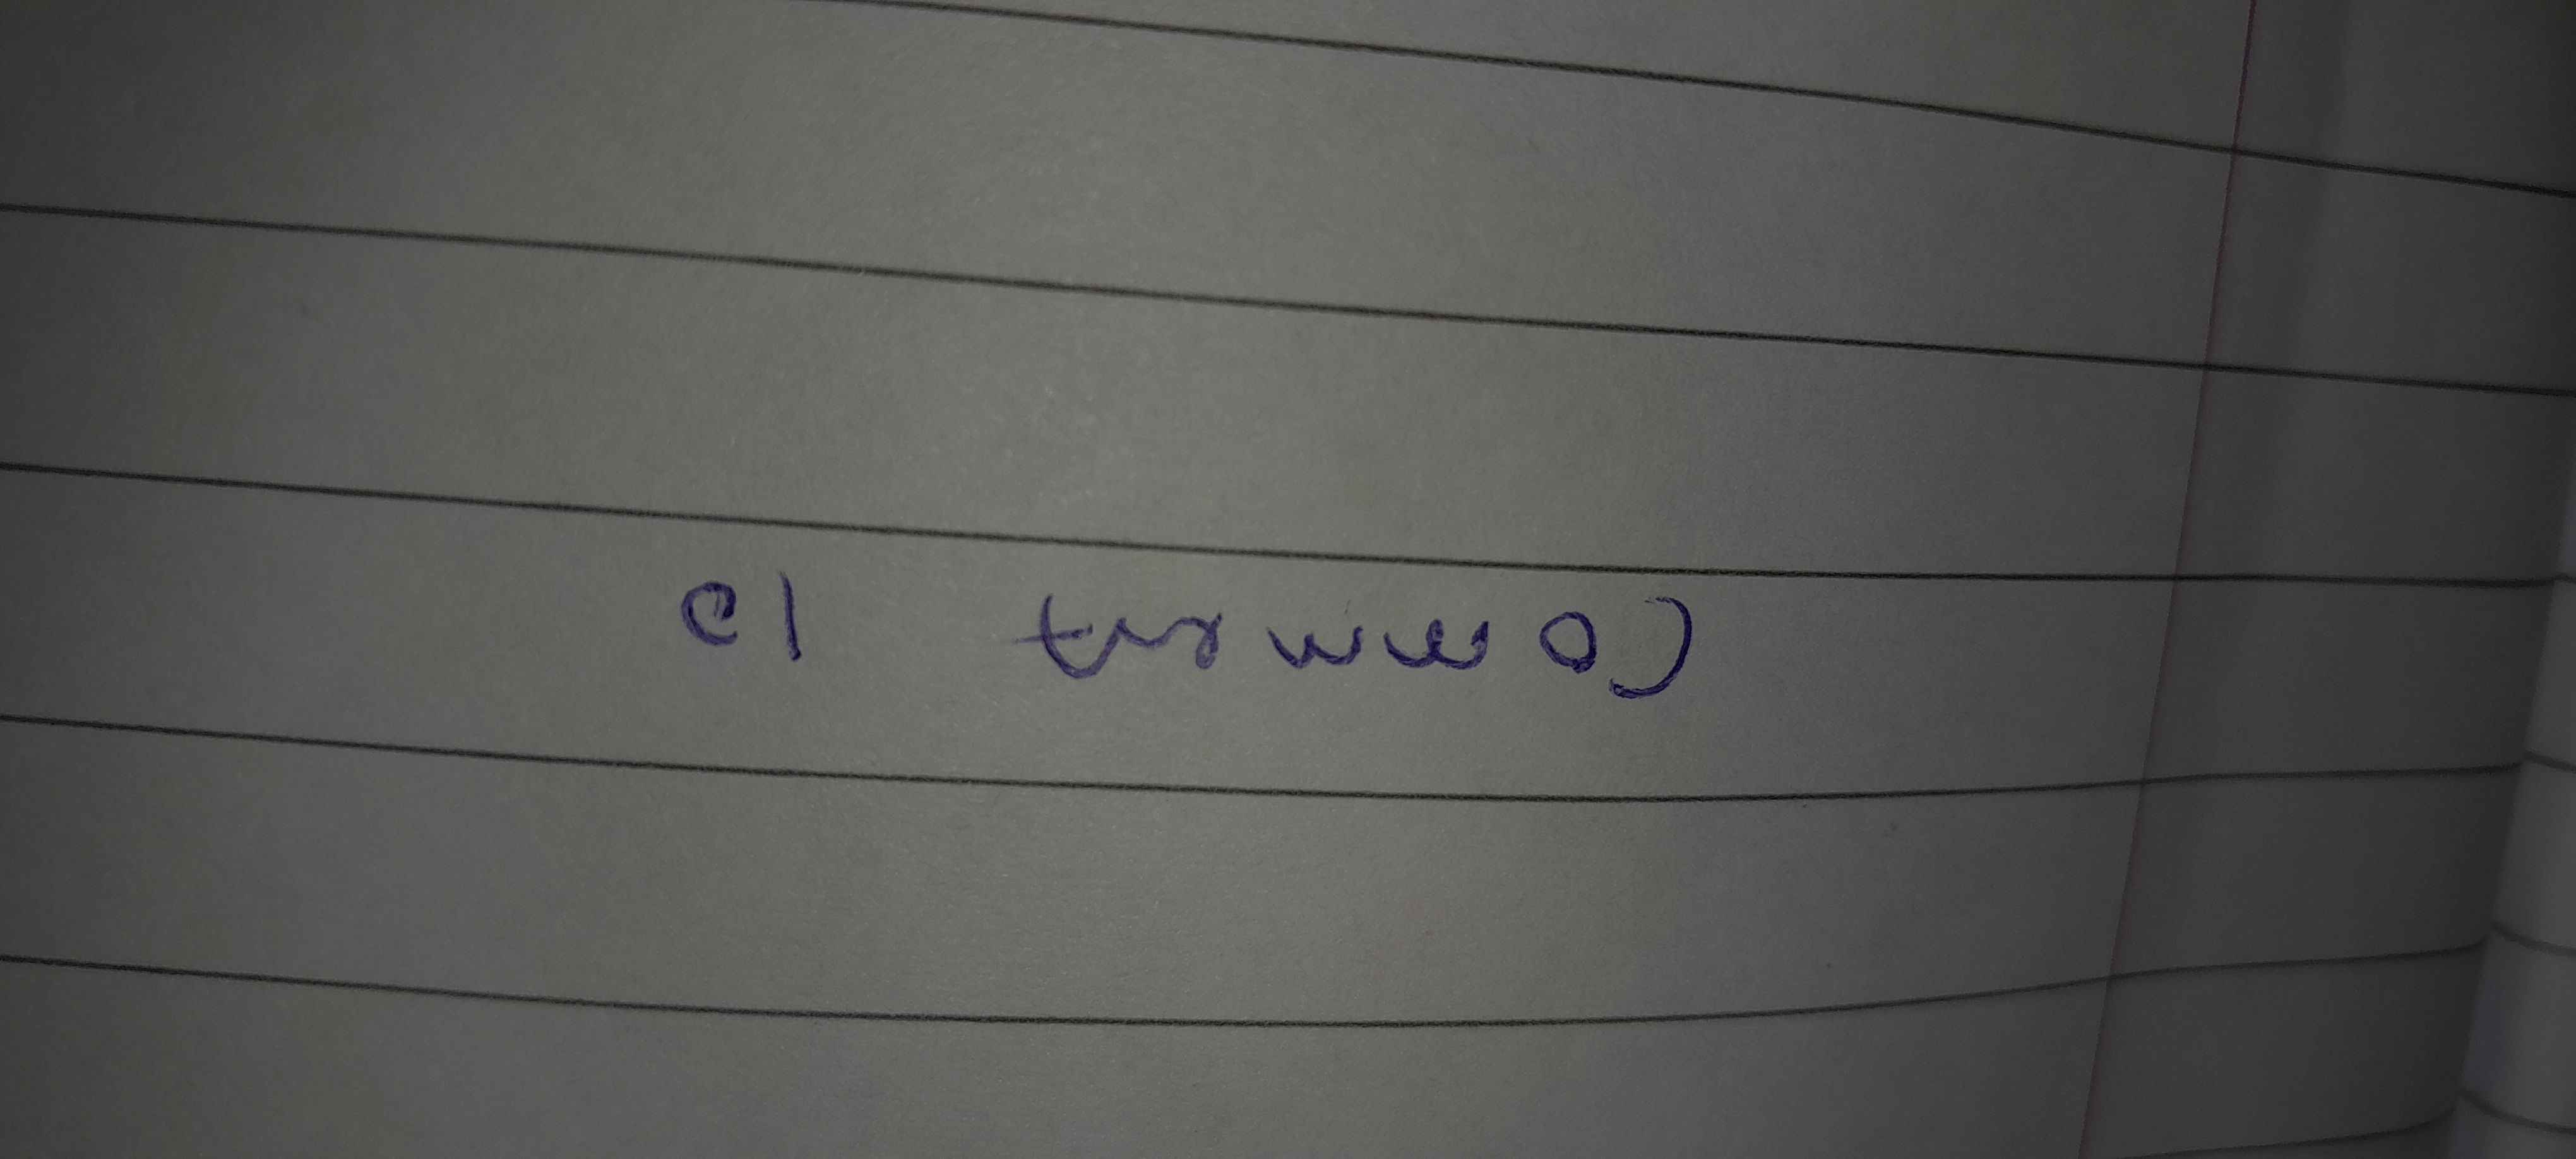 Comment 10